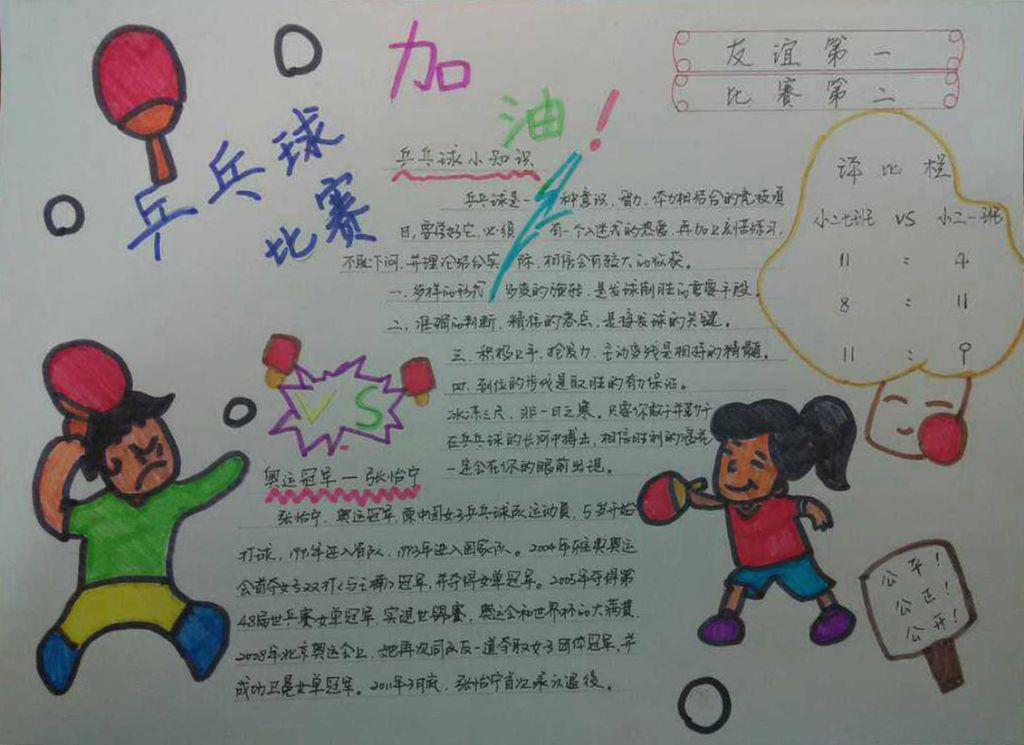 加油!
乒乓球
比赛
友谊第一
比赛第二
乒乓球小知识
乒乓球是一种意识、智力、体力相结合的竞技项
目,要学好它,必须有一个入迷式的热爱,再加上刻苦练习,
不耻下问,并理论结合实际,相信会有较大的收获。
一、多样的形式,多变的旋转,是发球制胜的重要手段。
二、准确的判断,精信的落点,是接发球的关键。
三、积极上手,抢发力,主动变线是相持的精髓。
四、到位的步伐是取胜的有力保证。
冰冻三尺,非一日之寒。只要你敢于并勤于
在乒乓球的长河中搏击,相信胜利的浪花
一定会在你的眼前出现。
评比栏
小二七班 VS 小二一班
11 : 4
8 : 11
11 : 9
VS
奥运冠军—张怡宁
张怡宁,奥运冠军,原中国女子乒乓球队运动员,5岁开始
打球,1991年进入省队,1993年进入国家队。2004年在雅典奥运
会首夺女子双打(与王楠)冠军,并夺得女单冠军。2005年夺得第
48届世乒赛女单冠军,实现世锦赛,奥运会和世界杯的大满贯。
2008年北京奥运会上,她再次同队友一道夺取女子团体冠军,并
成功卫冕女单冠军。2011年3月底,张怡宁首次承认退役。
公平!
公正!
公开!